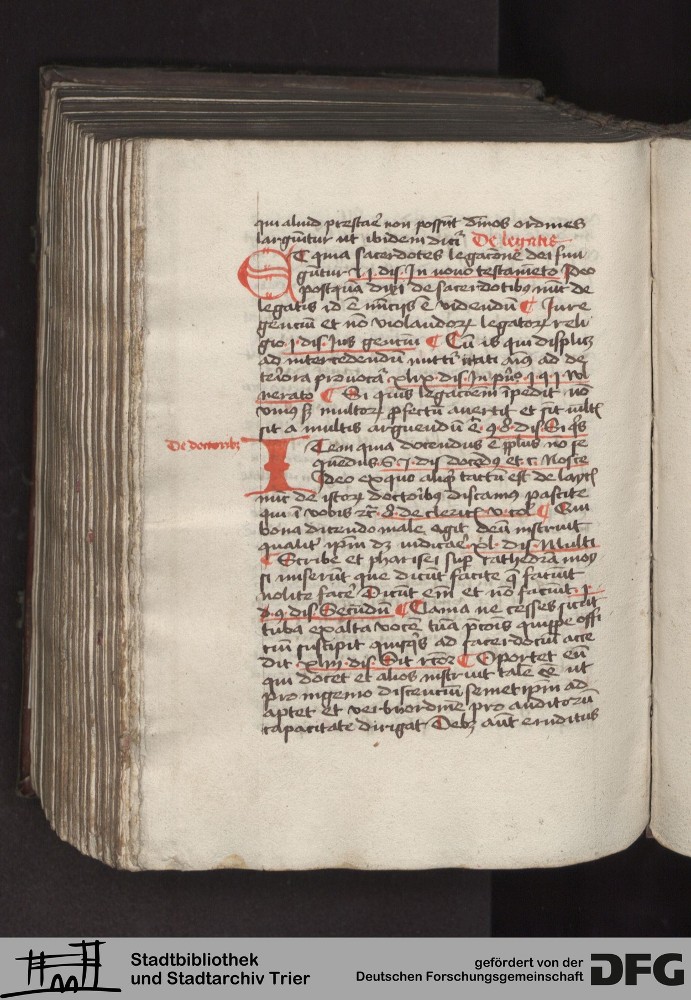 qui aliud prestare non possunt dmos ordines
largiuntur ut ibidem dicitur De legatis
Et quia sacerdotes legacone dei fun
guntur in novo testameto Ideo
postqua dixi de sacerdotibus nuc de
legatis id e nuciis e videndu Jure
genciu et no violandorum legatorum reli
gio i. dis. Jus genciu Cu is qui displicz
ad intercedendu mittitur irati aius ad de
teriora provocatur xlix. dis. In prio
Si quis legacoem ipedit no
vnius sz multorum profectu auertit et sicut
sit a multis arguendu e dis. Si quis
De doctoribus
Item quia docendus e pplus no se
quedus dis docedus et c. Nosse
Ideo exquo aliquid tactu est de
nuc de istorum doctoribus discamus pascite
qui i vobis de clericis Qui
bona dicendo male agit deu instruit
qualiter ipm dz iudicare xl. dis. Multi
Scribe et pharisei super cathedra moy
si que dicut facite que faciut
nolite facere Dicut em et no faciut
dis Secundu Clama ne cesses sicut
tuba exalta voce tua pconis quippe offi
ciu suscipit quisquis ad sacerdociu acce
dit xliii. dis. Sit rcor Oportet eu
qui docet et alios instruit tale ee ut
pro ingenio discenciu semetipm ad
aptet et verbi ordine pro auditoru
capacitate dirigat Debz aut eruditus
Stadtbibliothek
und Stadtarchiv Trier
gefördert von der
Deutschen Forschungsgemeinschaft
DFG